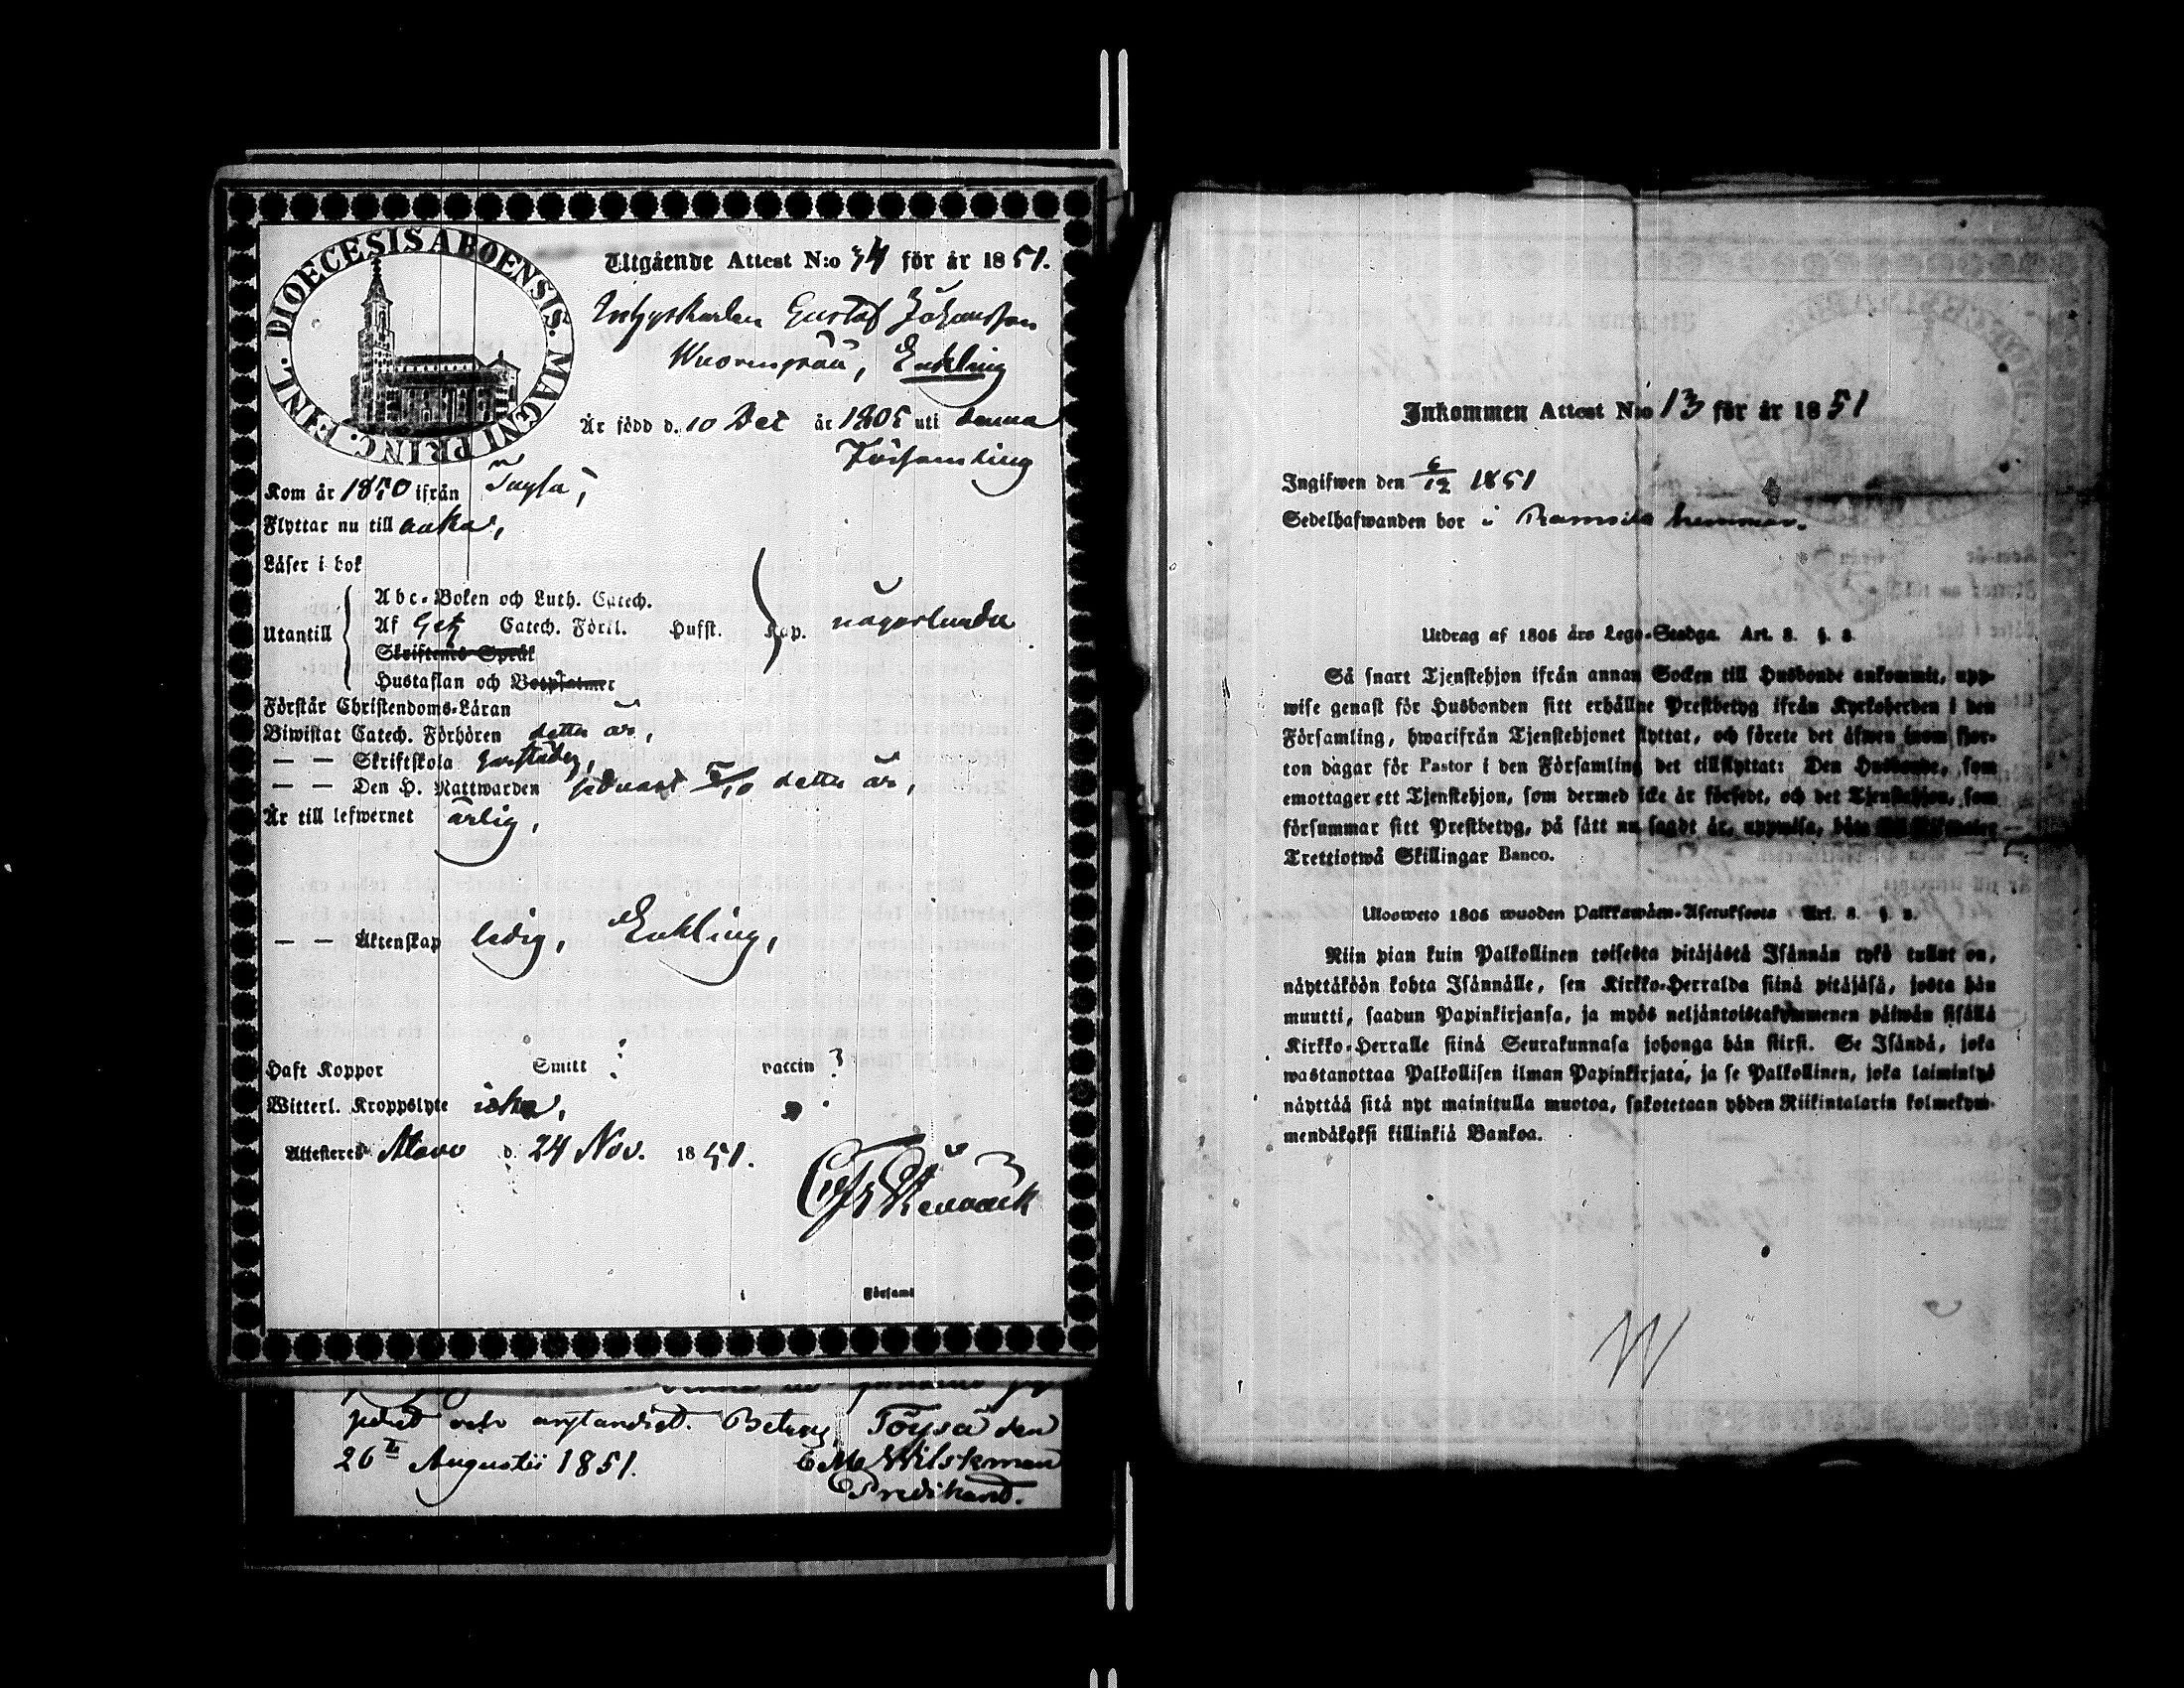 DIOECESIS ABOENSIS. MAGNI PRINC. FINL.
Utgående Attest N:o 34 för år 1851.
Inhysekarlen Gustaf Johansson
Wuorenpää, Enkling
Är född d. 10 Dec år 1805 uti denna
Församling
Kom år 1850 ifrån Töysä,
Flyttar nu till
Läser i bok
Utantill
Abc-Boken och Luth. Catech.
Af Getz Catech. Förkl. Hufst. Kap. någorlunda
Skriftenes Språk
Hustaflan och Botpsalmer
Förstår Christendoms-Läran
Biwistat Catech. Förhören detta år,
— — Skriftskola
— — Den H. Nattwarden sednast 5/10 detta år,
Är till lefwernet ärlig,
— — Äktenskap ledig, Enkling,
Haft Koppor Smitt ? vaccin ?
Witterl. Kroppslyte icke,
Attesteres Alavo d. 24 Nov. 1851.
i Församl
Töysä den
26 Augusti 1851. Wilskman
Predikant.
Inkommen Attest N:o 13 för år 1851
Ingifwen den 6/12 1851
Sedelhafwanden bor i hemman.
Utdrag af 1805 års Lego-Stadga. Art. 8. §. 8
Så snart Tjenstehjon ifrån annan Socken till Husbonde ankommit, upp-
wise genast för Husbonden sitt erhållne Prestbetyg ifrån Kyrkoherden i den
Församling, hwarifrån Tjenstehjonet flyttat, och förete det äfwen inom fjor-
ton dagar för Pastor i den Församling det tillflyttat: Den Husbonde, som
emottager ett Tjenstehjon, som dermed icke är försedt, och det Tjenstehjon, som
försummar sitt Prestbetyg, på sätt nu sagdt är, uppwisa,
Trettiotwå Skillingar Banco.
Ulosweto 1805 wuoden Palkkawäen-Asetuksesta Art. 8. §. 8.
Niin pian kuin Palkollinen toisesta pitäjästä Isännän tykö tullut on,
näyttäköön kohta Isännälle, sen Kirkko-Herralda siinä pitäjäsä, josta hän
muutti, saadun Papinkirjansa, ja myös neljäntoistakymmenen päiwän sisällä
Kirkko-Herralle siinä Seurakunnasa johonga hän siirsi. Se Isändä, joka
wastanottaa Palkollisen ilman Papinkirjata, ja se Palkollinen, joka laiminlyö
näyttää sitä nyt mainitulla muotoa, sakotetaan yhden Riikintalarin kolmekym-
mendäkaksi killinkiä Bankoa.
W